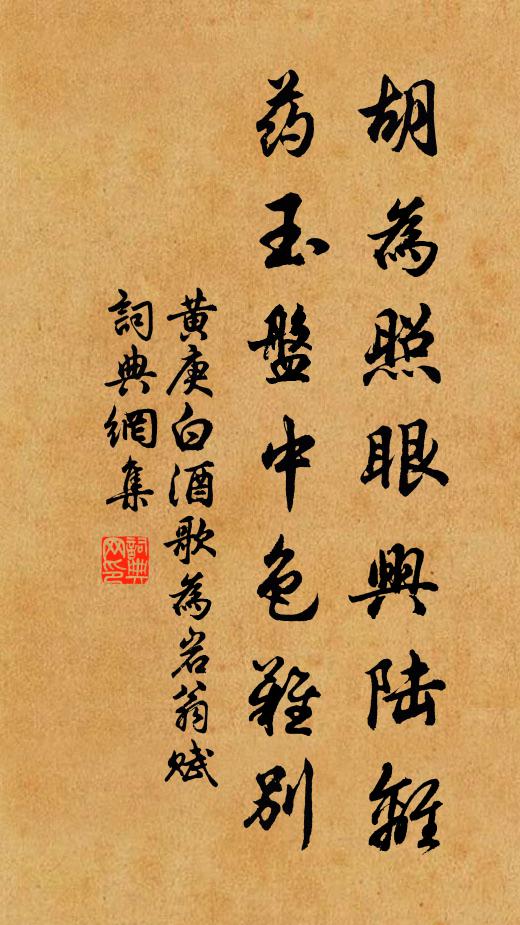 胡為照眼興陆離
药玉盤中色難別
黄庚白酒歌為岩翁赋
詞典網集
詞典网印